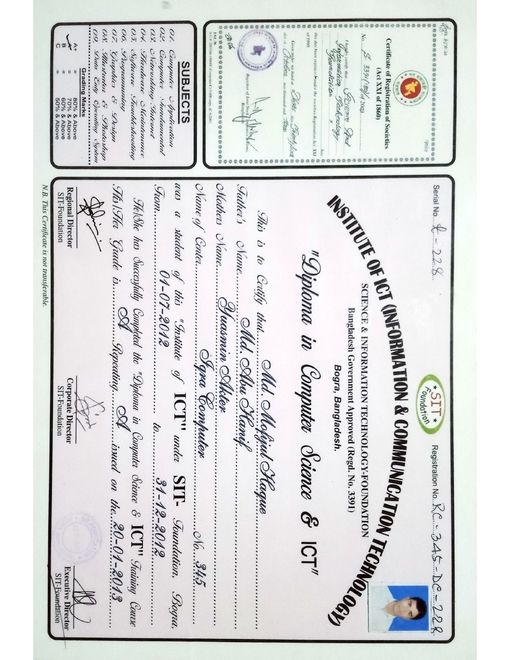 Serial No. A-228
SIT
Foundation
Registration No. RC-345-DC-228
INSTITUTE OF ICT (INFORMATION & COMMUNICATION TECHNOLOGY)
SCIENCE & INFORMATION TECHNOLOGY-FOUNDATION
Bangladesh Government Approved (Regd. No. 3391)
Bogra, Bangladesh.
"Diploma in Computer Science & ICT"
This is to Certify that Md. Mofijul Haque
Father's Name Md. Abu Hanif
Mothers Name Yeasmin Akter
Name of Center Iqra Computer No. 345
was a student of this "Institute of ICT" under SIT- Foundation, Bogra,
From 01-07-2012 to 31-12-2012
He/She has Succesfully Completed the "Diploma in Computer Science & ICT" Training Course
His/Her Grade is A Repeating A issued on the 20-01-2013
Regional Director
SIT-Foundation
Corporate Director
SIT-Foundation
Executive Director
SIT-Foundation
N.B. This Certificate is not transferable.
Certificate of Registration of Societies
(Act XXI of 1860)
No. S-3391
Science And
Information Technology
Foundation
SUBJECTS
01. Computer Application
02. Computer Fundamental
03. Networking & Internet
04. Hardware Maintenance
05. Software Troubleshooting
06. Programming
07. Graphics Design
08. Illustrator & Photoshop
09. Disk Operating System
Grading Marks
A+ = 80% & Above
A = 70% & Above
B = 60% & Above
C = 50% & Above